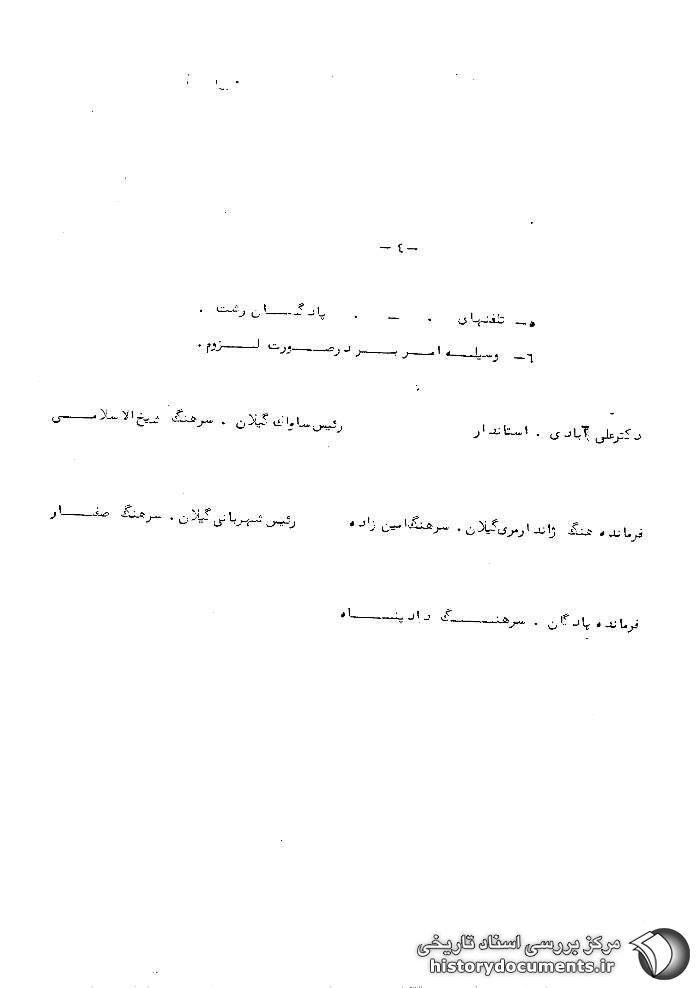 - ٤ -
٥- تلفنهای . - . پادگان رشت .
٦- وسیله امر بر درصورت لزوم .
دکترعلی آبادی . استاندار رئیس ساواك گیلان . سرهنگ شیخ الاسلامی
فرمانده هنگ ژاندارمری گیلان . سرهنگ امین زاده رئیس شهربانی گیلان . سرهنگ صفار
فرمانده پادگان . سرهنگ دادپناه
مرکز بررسی اسناد تاریخی
historydocuments.ir